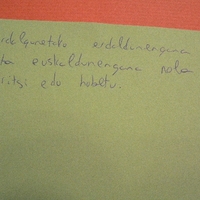 rdelgunetako erdaldunengana
ta euskaldunengana nola
iritsi edo hobetu.